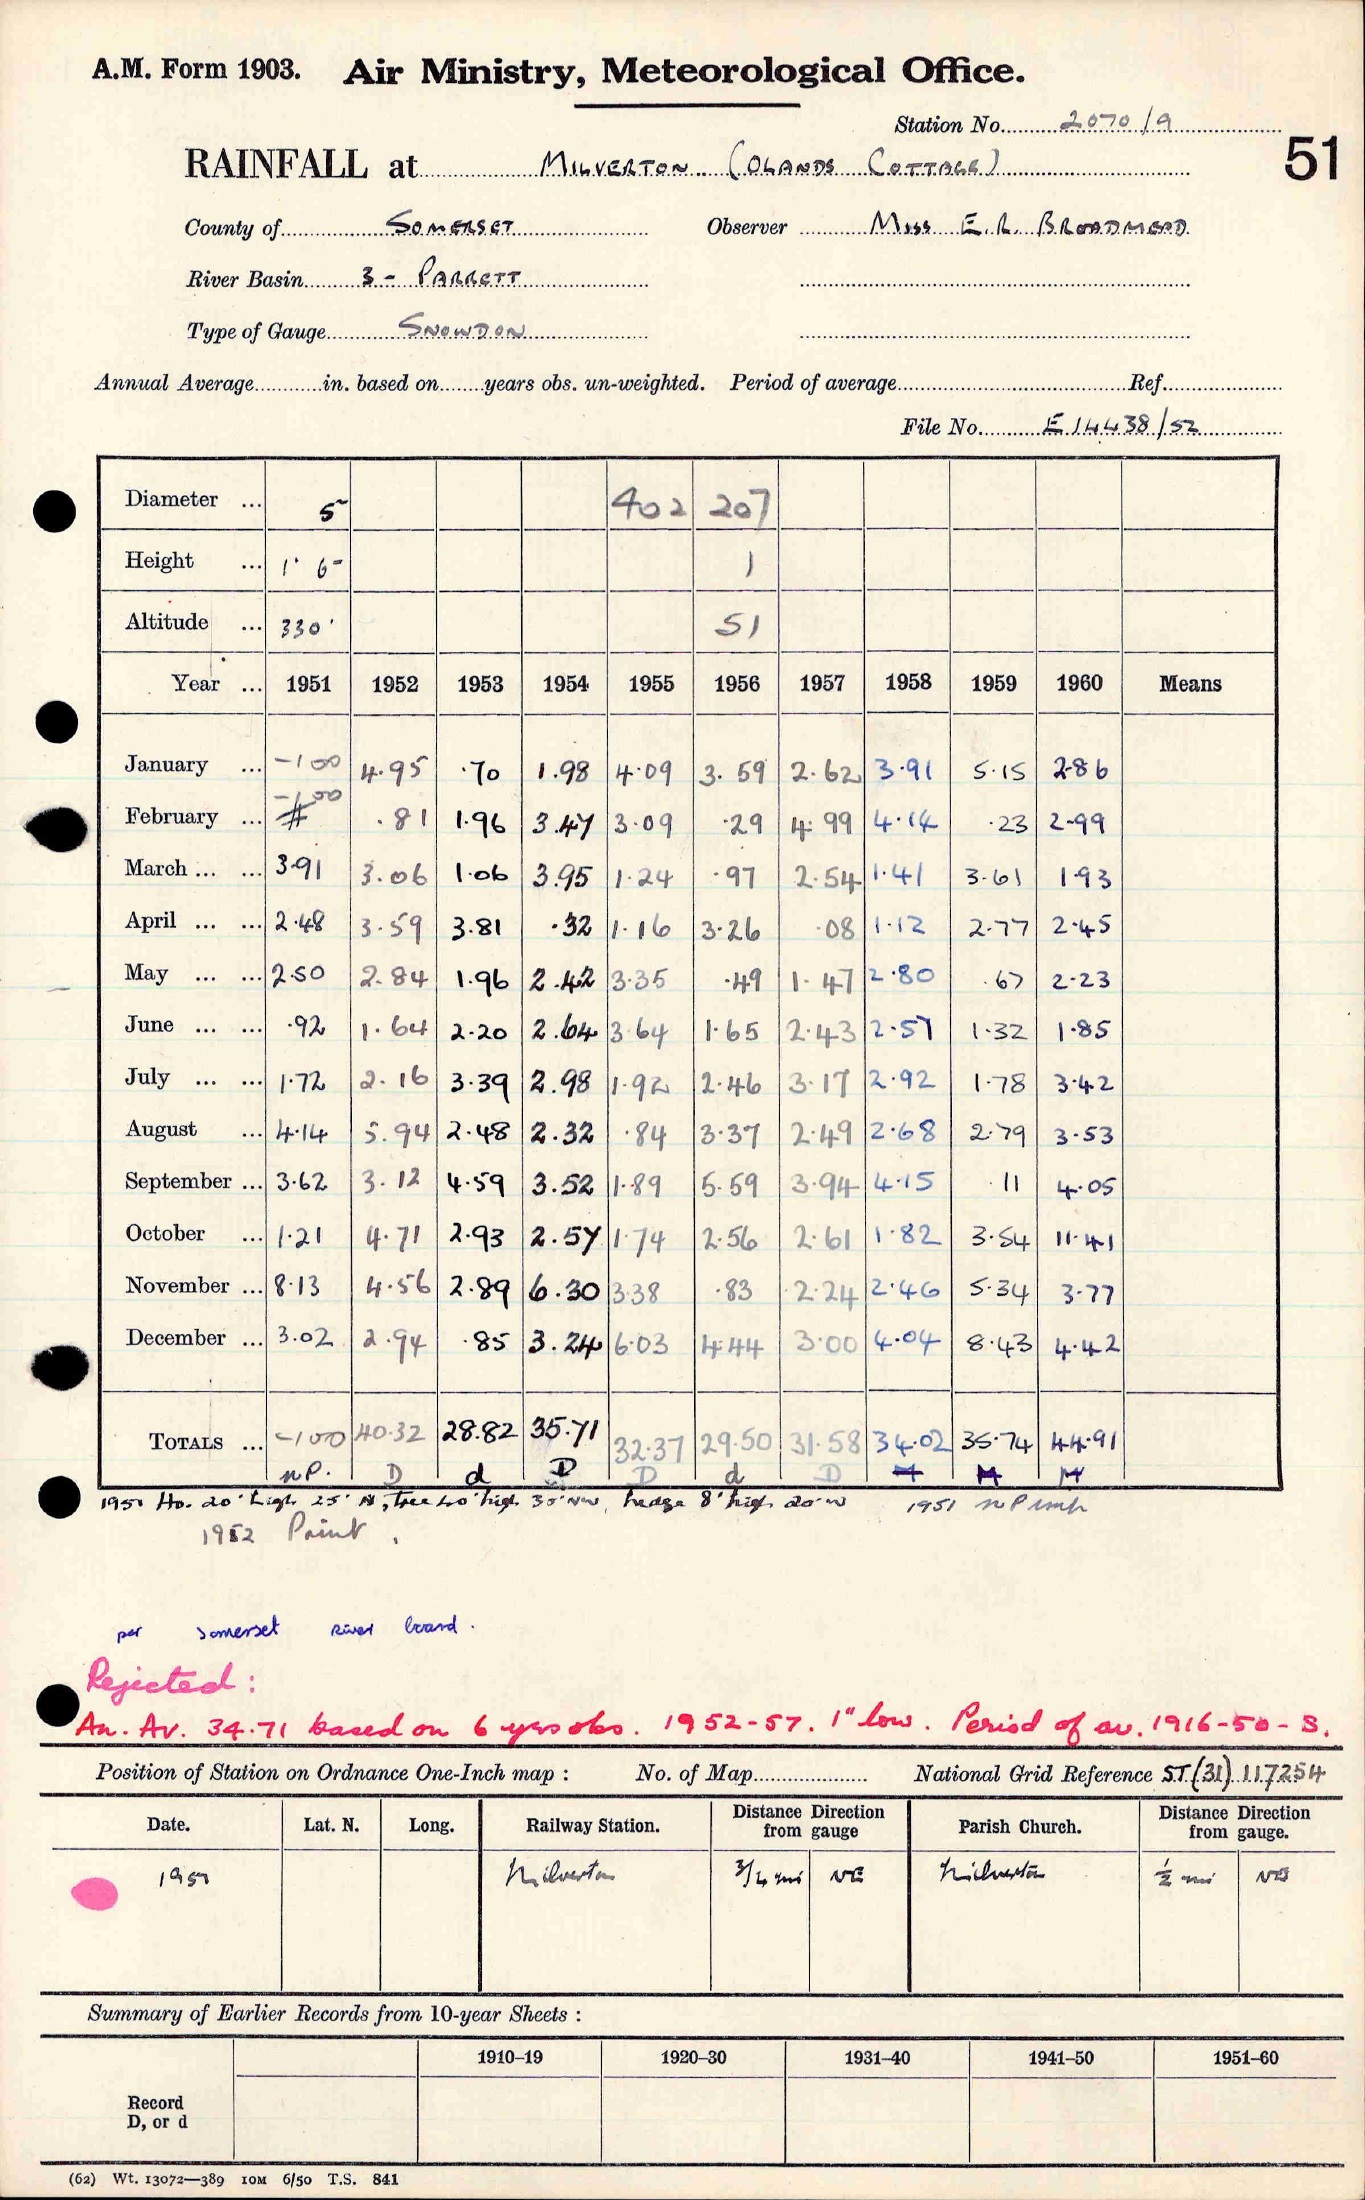 A.M. Form 1903. Air Ministry, Meteorological Office.
Station No. 2070/9
RAINFALL at MILVERTON (OLANDS COTTAGE) 51
County of SOMERSET Observer MISS E.R. BROADMEAD
River Basin 3 - PARRETT
Type of Gauge SNOWDON
Annual Average in. based on years obs. un-weighted. Period of average Ref.
File No. E14438/52
Diameter ... 5 402 207
Height ... 1' 6" 1
Altitude ... 330' 51
Year ... 1951 1952 1953 1954 1955 1956 1957 1958 1959 1960 Means
January ... -100 4.95 .70 1.98 4.09 3.59 2.62 3.91 5.15 2.86
February ... -100 .81 1.96 3.47 3.09 .29 4.99 4.14 .23 2.99
March ... ... 3.91 3.06 1.06 3.95 1.24 .97 2.54 1.41 3.61 1.93
April ... ... 2.48 3.59 3.81 .32 1.16 3.26 .08 1.12 2.77 2.45
May ... ... 2.50 2.84 1.96 2.42 3.35 .49 1.47 2.80 .67 2.23
June ... ... .92 1.64 2.20 2.64 3.64 1.65 2.43 2.57 1.32 1.85
July ... ... 1.72 2.16 3.39 2.98 1.92 2.46 3.17 2.92 1.78 3.42
August ... 4.14 5.94 2.48 2.32 .84 3.37 2.49 2.68 2.79 3.53
September ... 3.62 3.12 4.59 3.52 1.89 5.59 3.94 4.15 .11 4.05
October ... 1.21 4.71 2.93 2.57 1.74 2.56 2.61 1.82 3.54 11.41
November ... 8.13 4.56 2.89 6.30 3.38 .83 2.24 2.46 5.34 3.77
December ... 3.02 2.94 .85 3.24 6.03 4.44 3.00 4.04 8.43 4.42
TOTALS ... -100 40.32 28.82 35.71 32.37 29.50 31.58 34.02 35.74 44.91
nP. D d D D d D M M M
1951 Ho. 20' high 25' N, tree 40' high 35' NW, hedge 8' high 20' W 1951 nP imp
1952 Print.
per Somerset River board.
Rejected:
An. Av. 34.71 based on 6 yrs obs. 1952-57. 1" low. Period of av. 1916-50 - S.
Position of Station on Ordnance One-Inch map : No. of Map National Grid Reference ST(31) 117254
Date. Lat. N. Long. Railway Station. Distance Direction from gauge Parish Church. Distance Direction from gauge.
1951 Milverton 3/4 mi NE Milverton 1/2 mi NE
Summary of Earlier Records from 10-year Sheets :
1910–19 1920–30 1931–40 1941–50 1951–60
Record
D, or d
(62) Wt. 13072—389 10M 6/50 T.S. 841